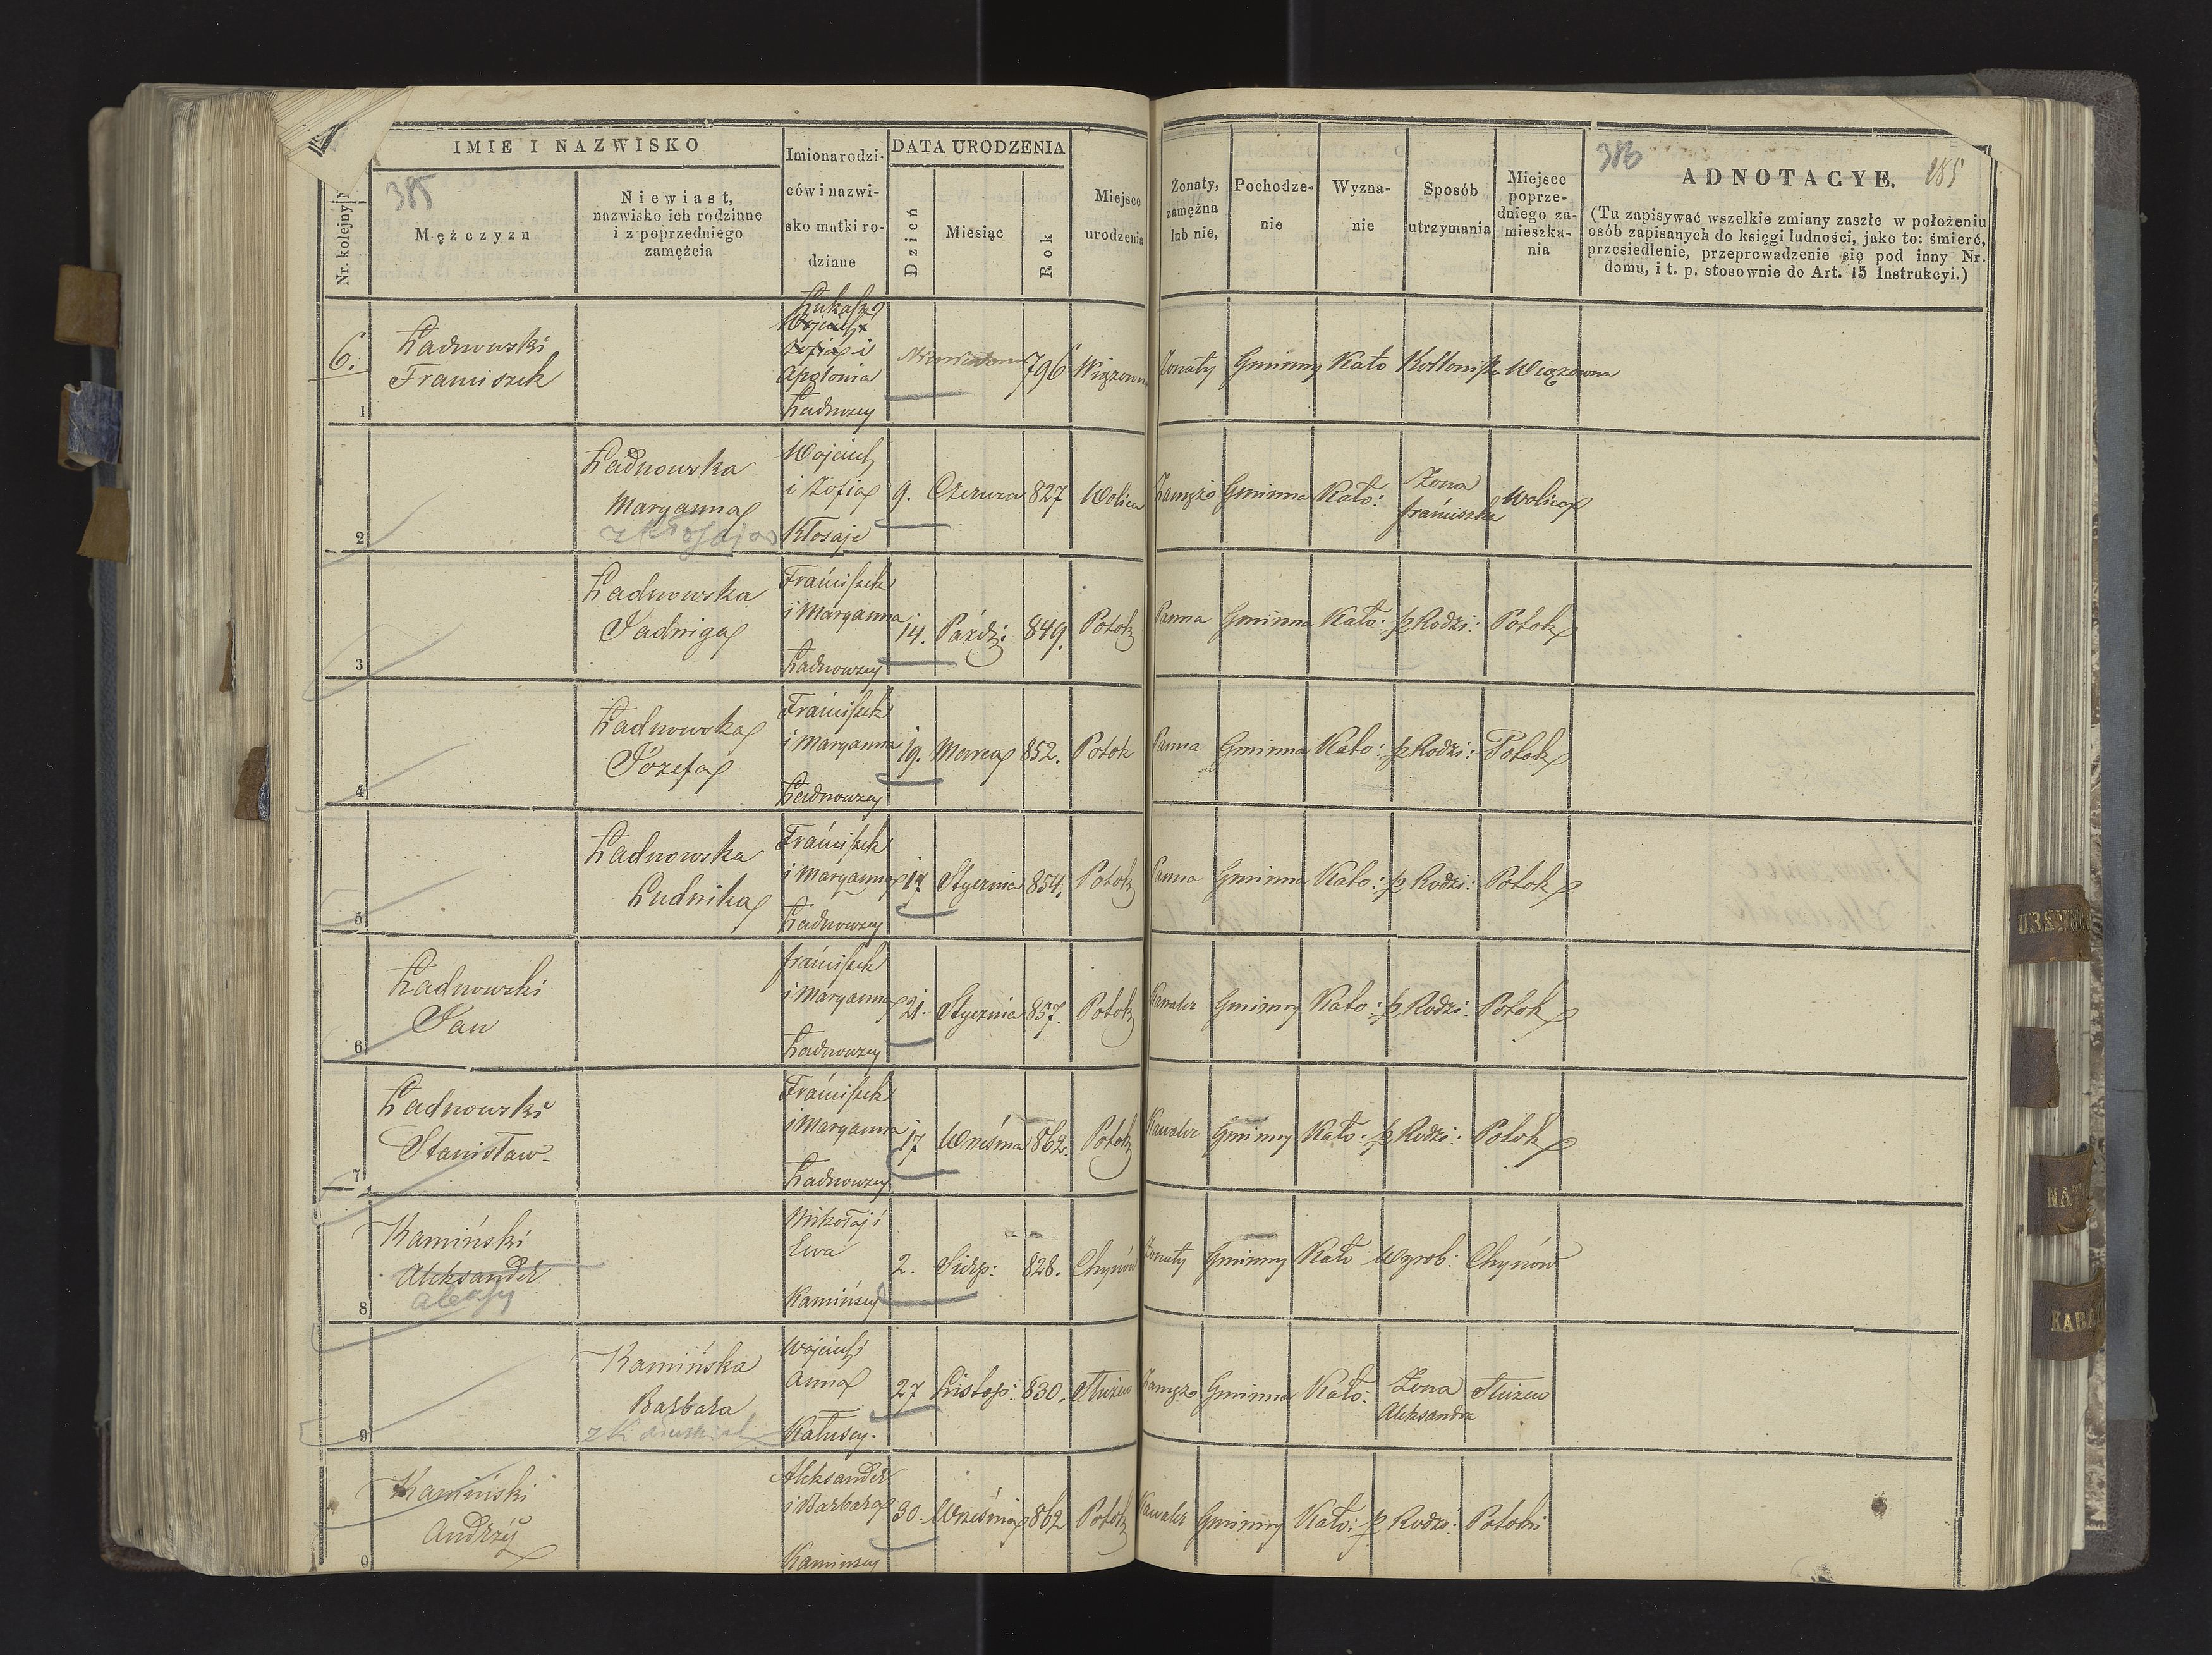 IMIE I NAZWISKO
Nr. kolejny
385
Mężczyzn
Niewiast,
nazwisko ich rodzinne
i z poprzedniego
zamęźcia
Imiona rodzi-
ców i nazwi-
sko matki ro-
dzinne
DATA URODZENIA
Dzień
Miesiąc
Rok
Miejsce
urodzenia
Żonaty,
zamężna
lub nie,
Pochodze-
nie
Wyzna-
nie
Sposób
utrzymania
Miejsce
poprze-
dniego za-
mieszka-
nia
386
ADNOTACYE.
185
(Tu zapisywać wszelkie zmiany zaszłe w położeniu
osób zapisanych do księgi ludności, jako to: śmierć,
przesiedlenie, przeprowadzenie się pod inny Nr.
domu, i t. p. stosownie do Art. 15 Instrukcyi.)
6.
1
Ładnowski
Franciszek
Łukasz
Wojciech
Zofia i
Apolonia
Ładnowscy
796
Wiązowna
Żonaty
Gminny
Kato
Kollonista
Wiązowna
2
Ładnowska
Maryanna
z Kłosajów
Wojciech
i Zofia
Kłosaje
9.
Czerwca
827
Wolica
Zamęż
Gminna
Kato:
Żona
franciszka
Wolica
3
Ładnowska
Jadwiga
Franciszek
i Maryanna
Ładnowscy
14.
Paźdz:
849.
Potok
Panna
Gminna
Kato:
p Rodzi:
Potok
4
Ładnowska
Józefa
Franciszek
i Maryanna
Ładnowscy
19.
Marca
852.
Potok
Panna
Gminna
Kato:
p Rodzi:
Potok
5
Ładnowska
Ludwika
Franciszek
i Maryanna
Ładnowscy
17
Stycznia
854.
Potok
Panna
Gminna
Kato:
p Rodzi:
Potok
6
Ładnowski
Jan
franciszek
i Maryanna
Ładnowscy
21.
Stycznia
857.
Potok
Kawaler
Gminny
Kato:
p Rodzi:
Potok
7
Ładnowski
Stanisław
Franciszek
i Maryanna
Ładnowscy
17
Wreśnia
862.
Potok
Kawaler
Gminny
Kato:
p Rodzi:
Potok
8
Kamiński
Aleksander
Alexy
Mikołaj i
Ewa
Kamińscy
2.
Sierp:
828.
Chynów
Żonaty
Gminny
Kato
Wyrob:
Chynów
9
Kamińska
Barbara
Wojciech i
Anna
Kałuscy.
27
Listop:
830.
Służew
Zamęż
Gminna
Kato:
Żona
Aleksandra
Służew
0
Kamiński
Andrzej
Aleksander
i Barbara
Kamińscy
30.
Wreśnia
862
Potok
Kawaler
Gminny
Kato:
p Rodzi:
Potok
URSYNÓ
NAT
KABA